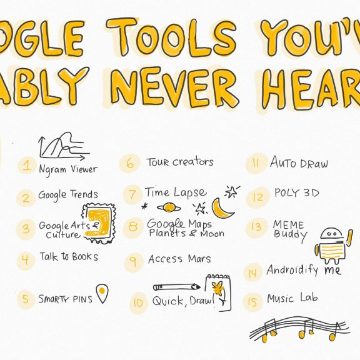 OGLE TOOLS YOU'V
ABLY NEVER HEAR
1 Ngram Viewer
2 Google Trends
3 Google Arts &
Culture
4 Talk to Books
5 SMARTY PINS
6 TOUR CREATORS
7 Time Lapse
8 Google Maps
Planets & Moon
9 Access Mars
10 Quick, Draw!
11 AUTO DRAW
12 POLY 3D
13 MEME
Buddy
14 Androidify me
15 Music Lab